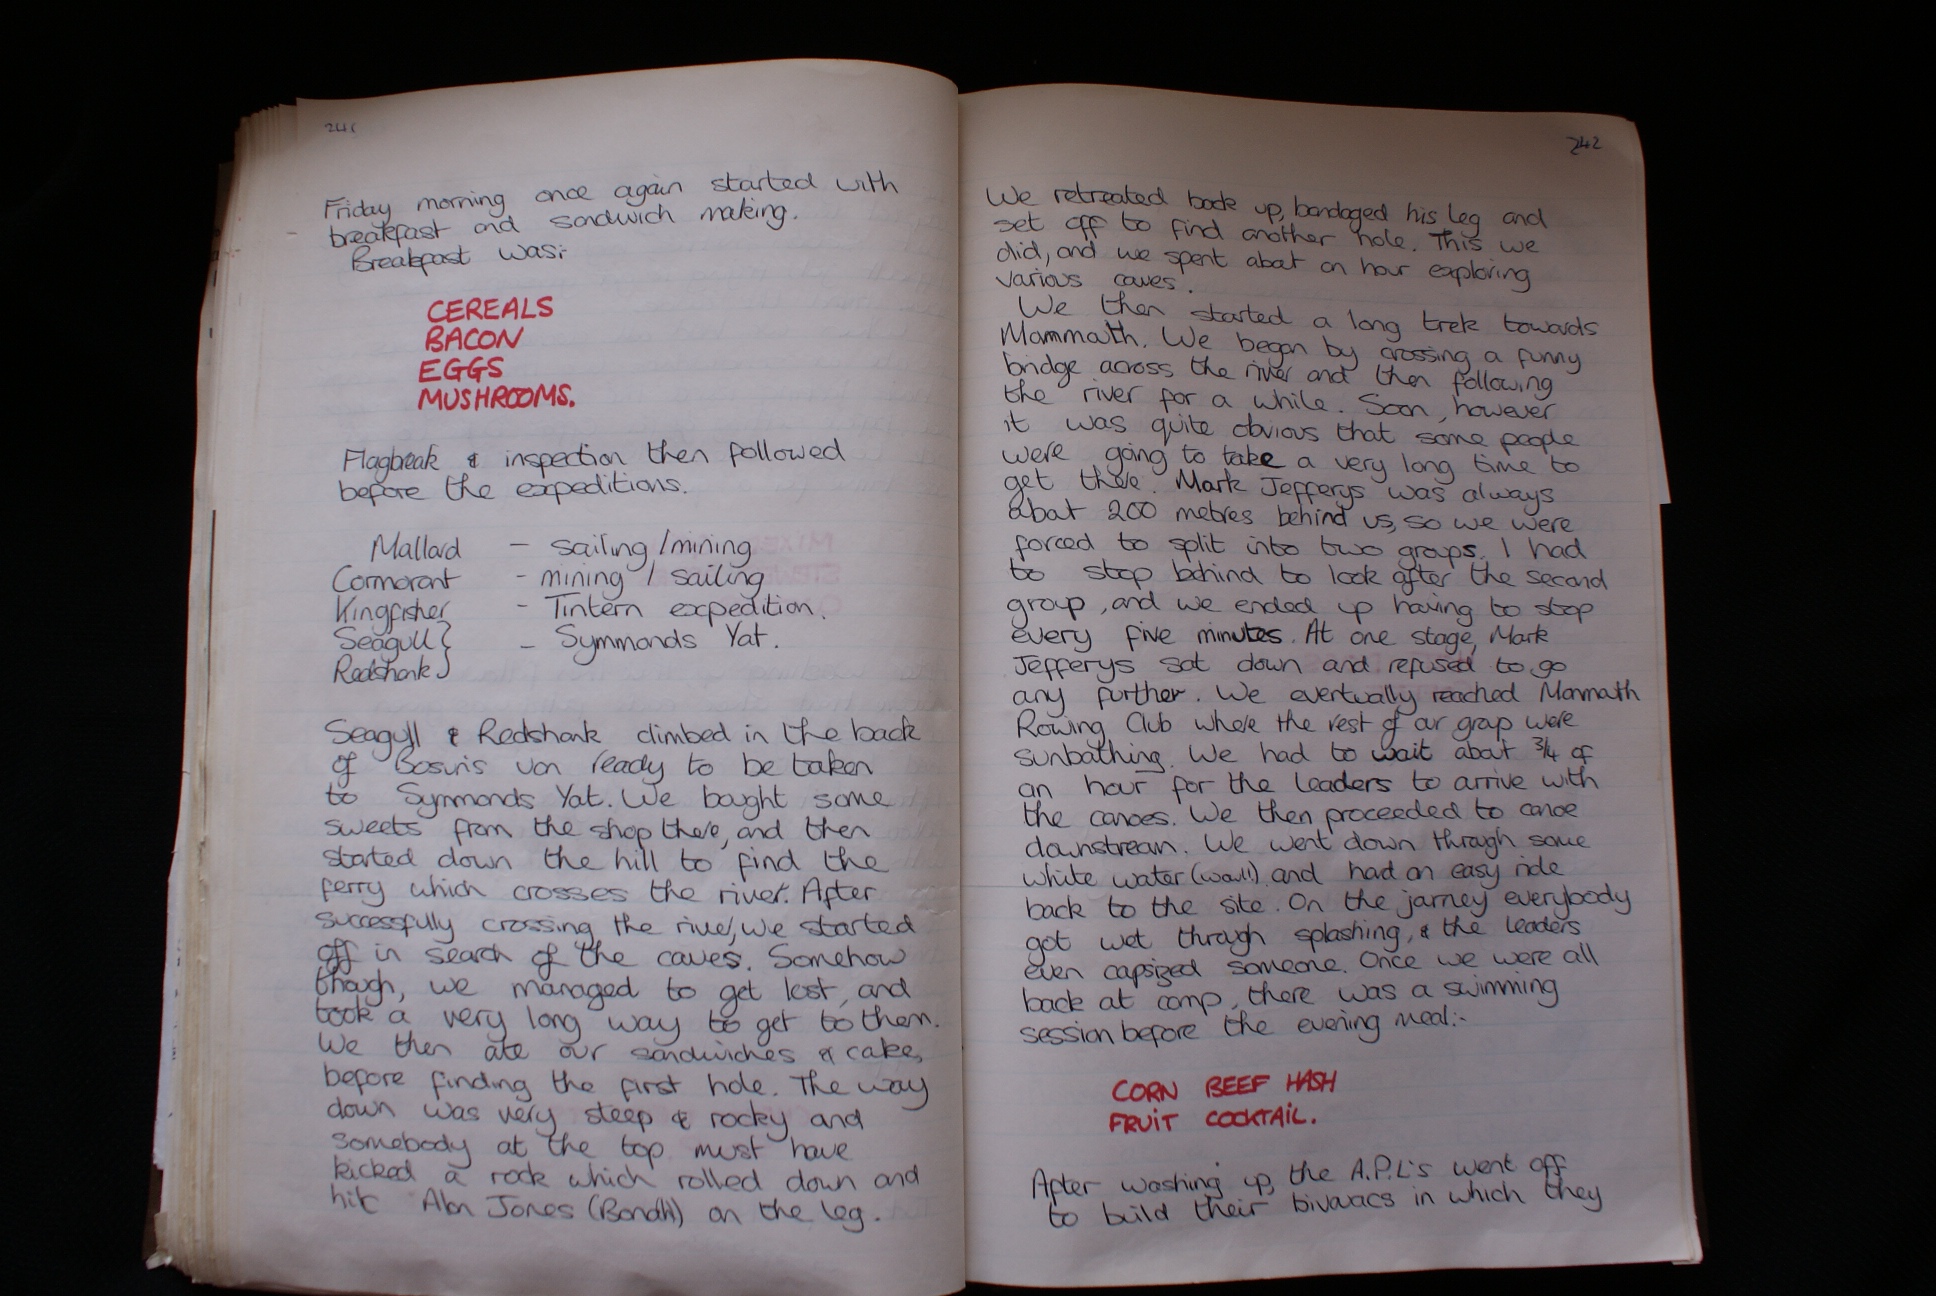 241
Friday morning once again started with
breakfast and sandwich making.
Breakfast was:-
CEREALS
BACON
EGGS
MUSHROOMS.
Flagbreak & inspection then followed
before the expeditions.
Mallard - sailing / mining
Cormorant - mining / sailing
Kingfisher - Tintern expedition.
Seagull } - Symmonds Yat.
Redshank }
Seagull & Redshank climbed in the back
of Bosun's van ready to be taken
to Symmonds Yat. We bought some
sweets from the shop there, and then
started down the hill to find the
ferry which crosses the river. After
successfully crossing the river, we started
off in search of the caves. Somehow
though, we managed to get lost, and
took a very long way to get to them.
We then ate our sandwiches & cake,
before finding the first hole. The way
down was very steep & rocky and
somebody at the top must have
kicked a rock which rolled down and
hit Alan Jones on the leg.
242
We retreated back up, bandaged his leg and
set off to find another hole. This we
did, and we spent about an hour exploring
various caves.
We then started a long trek towards
Mammoth. We began by crossing a funny
bridge across the river and then following
the river for a while. Soon, however
it was quite obvious that some people
were going to take a very long time to
get there. Mark Jefferys was always
about 200 metres behind us, so we were
forced to split into two groups. I had
to stop behind to look after the second
group, and we ended up having to stop
every five minutes. At one stage, Mark
Jefferys sat down and refused to go
any further. We eventually reached Monmouth
Rowing Club where the rest of our group were
sunbathing. We had to wait about 3/4 of
an hour for the leaders to arrive with
the canoes. We then proceeded to canoe
downstream. We went down through some
white water and had an easy ride
back to the site. On the journey everybody
got wet through splashing, & the leaders
even capsized someone. Once we were all
back at camp, there was a swimming
session before the evening meal:-
CORN BEEF HASH
FRUIT COCKTAIL.
After washing up, the A.P.L's went off
to build their bivouacs in which they